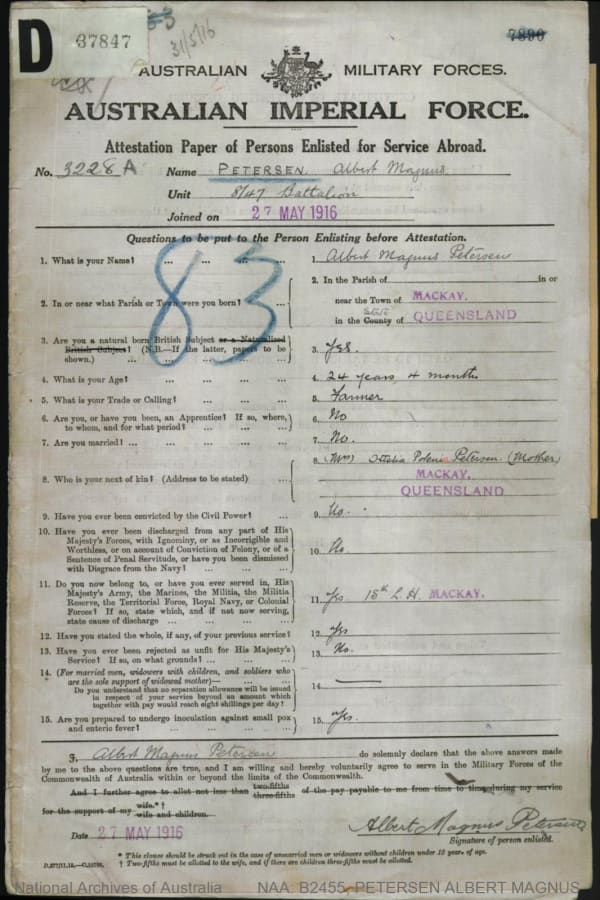 D 37847
31/5/16
7890
AUSTRALIAN MILITARY FORCES.
AUSTRALIAN IMPERIAL FORCE.
Attestation Paper of Persons Enlisted for Service Abroad.
No. 3228A Name PETERSEN Albert Magnus
Unit 8/47 Battalion
Joined on 27 MAY 1916
Questions to be put to the Person Enlisting before Attestation.
83
1. What is your Name? ... ... ... 1. Albert Magnus Petersen
2. In or near what Parish or Town were you born? ... 2. In the Parish of in or
near the Town of MACKAY.
in the County of State QUEENSLAND
3. Are you a natural born British Subject or a Naturalized
British Subject? (N.B.—If the latter, papers to be
shown.) ... ... ... 3. Yes.
4. What is your Age? ... ... ... 4. 24 years, 4 months
5. What is your Trade or Calling? ... ... ... 5. Farmer
6. Are you, or have you been, an Apprentice? If so, where,
to whom, and for what period? ... ... ... 6. No
7. Are you married? ... ... ... ... 7. No.
8. Who is your next of kin? (Address to be stated) ... 8. (Mrs) Petersen (Mother)
MACKAY.
QUEENSLAND
9. Have you ever been convicted by the Civil Power? ... 9. No.
10. Have you ever been discharged from any part of His
Majesty's Forces, with Ignominy, or as Incorrigible and
Worthless, or on account of Conviction of Felony, or of a
Sentence of Penal Servitude, or have you been dismissed
with Disgrace from the Navy? ... ... 10. No
11. Do you now belong to, or have you ever served in, His
Majesty's Army, the Marines, the Militia, the Militia
Reserve, the Territorial Force, Royal Navy, or Colonial
Forces? If so, state which, and if not now serving,
state cause of discharge ... ... ... ... 11. Yes 15th L.H. MACKAY.
12. Have you stated the whole, if any, of your previous service? 12. Yes
13. Have you ever been rejected as unfit for His Majesty's
Service? If so, on what grounds? ... ... ... 13. No.
14. (For married men, widowers with children, and soldiers who
are the sole support of widowed mother)— ... ...
Do you understand that no separation allowance will be issued
in respect of your service beyond an amount which
together with pay would reach eight shillings per day? 14. —
15. Are you prepared to undergo inoculation against small pox
and enteric fever? ... ... ... ... 15. Yes.
I, Albert Magnus Petersen do solemnly declare that the above answers made
by me to the above questions are true, and I am willing and hereby voluntarily agree to serve in the Military Forces of the
Commonwealth of Australia within or beyond the limits of the Commonwealth.
And I further agree to allot not less than two-fifths three-fifths of the pay payable to me from time to time during my service
for the support of my wife.*† wife and children.
Date 27 MAY 1916 Albert Magnus Petersen
Signature of person enlisted.
* This clause should be struck out in the case of unmarried men or widowers without children under 18 years of age.
† Two-fifths must be allotted to the wife, and if there are children three-fifths must be allotted.
National Archives of Australia NAA: B2455, PETERSEN ALBERT MAGNUS